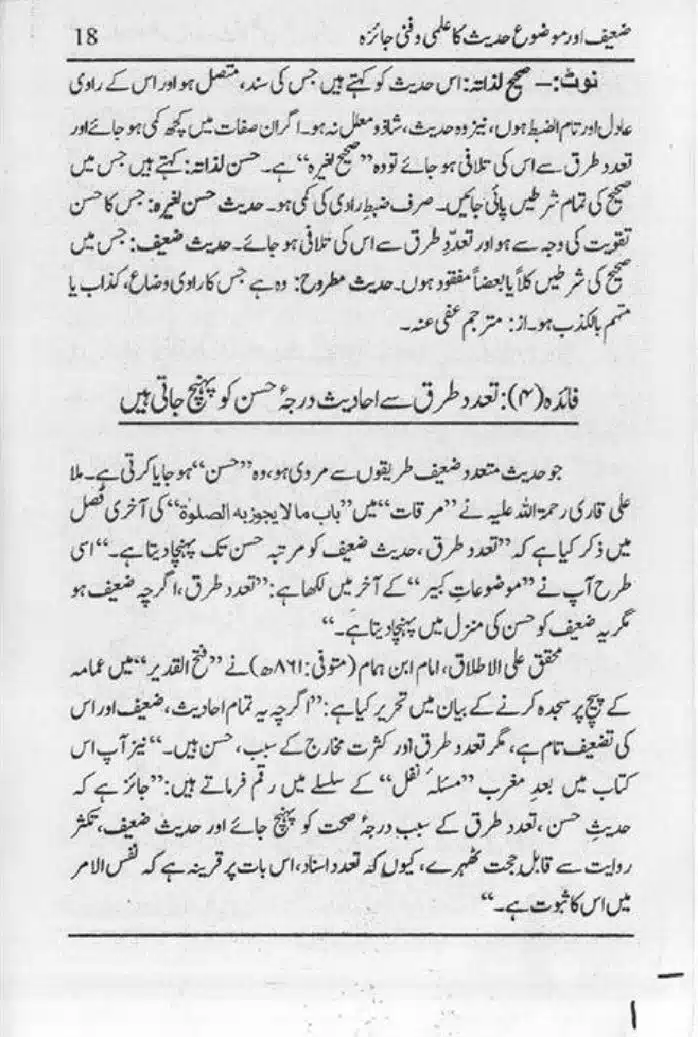 ضعیف اور موضوع حدیث کا علمی و فنی جائزہ
18
نوٹ:– صحیح لذاتہ: اس حدیث کو کہتے ہیں جس کی سند، متصل ہو اور اس کے راوی
عادل اور تام الضبط ہوں، نیز وہ حدیث، شاذ و معلل نہ ہو۔ اگر ان صفات میں کچھ کمی ہو جائے اور
تعدد طرق سے اس کی تلافی ہو جائے تو وہ ”صحیح لغیرہ“ ہے۔ حسن لذاتہ: کہتے ہیں جس میں
صحیح کی تمام شرطیں پائی جائیں۔ صرف ضبط راوی کی کمی ہو۔ حدیث حسن لغیرہ: جس کا حسن
تقویت کی وجہ سے ہو اور تعدّدِ طرق سے اس کی تلافی ہو جائے۔ حدیث ضعیف: جس میں
صحیح کی شرطیں کلاً یا بعضاً مفقود ہوں۔ حدیث مطروح: وہ ہے جس کا راوی وضاع، کذاب یا
متہم بالکذب ہو۔ از: مترجم عفی عنہ۔
فائدہ (۴): تعدد طرق سے احادیث درجۂ حسن کو پہنچ جاتی ہیں
جو حدیث متعدد ضعیف طریقوں سے مروی ہو، وہ ”حسن“ ہو جایا کرتی ہے۔ ملا
علی قاری رحمۃ اللہ علیہ نے ”مرقات“ میں ”باب مالا یجوز بہ الصلوٰۃ“ کی آخری فصل
میں ذکر کیا ہے کہ ”تعدد طرق، حدیث ضعیف کو مرتبہ حسن تک پہنچا دیتا ہے۔“ اسی
طرح آپ نے ”موضوعاتِ کبیر“ کے آخر میں لکھا ہے: ”تعدد طرق، اگرچہ ضعیف ہو
مگر یہ ضعیف کو حسن کی منزل میں پہنچا دیتا ہے۔“
محقق علی الاطلاق، امام ابن ہمام (متوفی: ۸۶۱ھ) نے ”فتح القدیر“ میں عمامہ
کے پیچ پر سجدہ کرنے کے بیان میں تحریر کیا ہے: ”اگرچہ یہ تمام احادیث، ضعیف اور اس
کی تضعیف تام ہے، مگر تعدد طرق اور کثرت مخارج کے سبب، حسن ہیں۔“ نیز آپ اس
کتاب میں بعدِ مغرب ”مسئلۂ نفل“ کے سلسلے میں رقم فرماتے ہیں: ”جائز ہے کہ
حدیثِ حسن، تعدد طرق کے سبب درجۂ صحت کو پہنچ جائے اور حدیث ضعیف، تکثر
روایت سے قابلِ حجت ٹھہرے، کیوں کہ تعدد اسناد، اس بات پر قرینہ ہے کہ نفس الامر
میں اس کا ثبوت ہے۔“